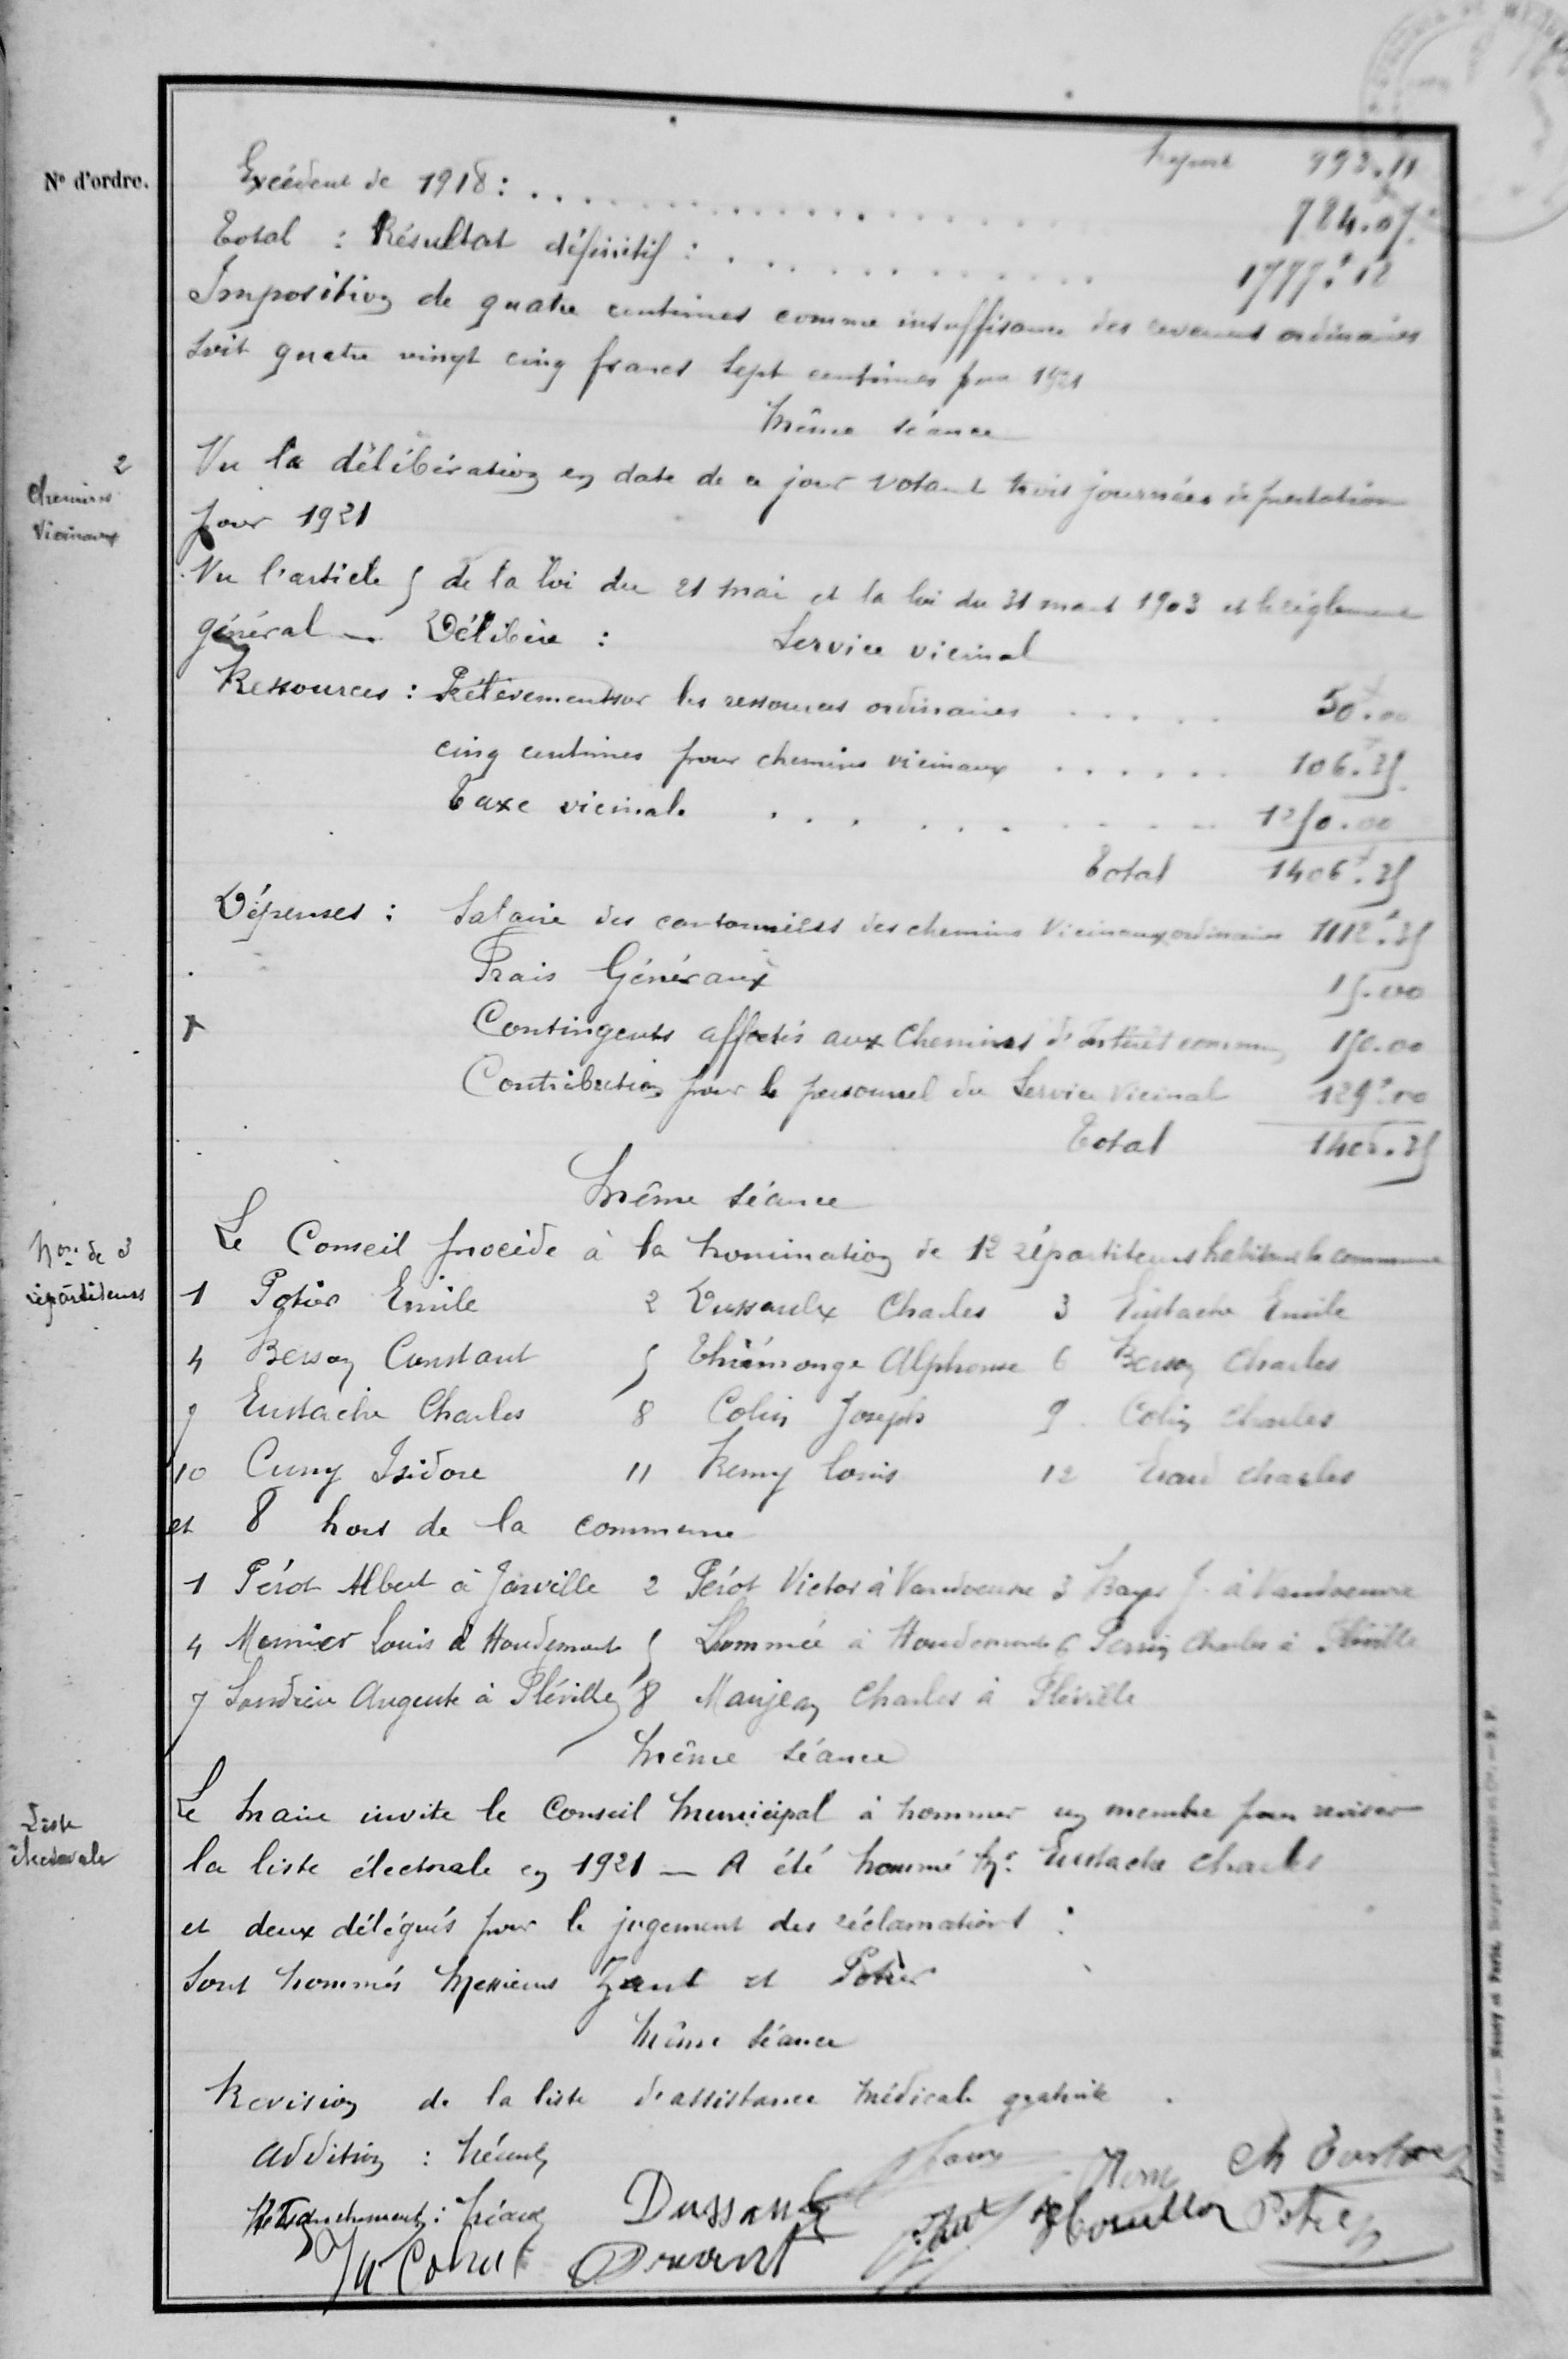 N° d'ordre.
Report 993.11
Excédent de 1918 : . . . . . . . . . . 784.07
Total : Résultat définitif : . . . . . . . . 1777f.18
Imposition de quatre centimes comme insuffisance des revenus ordinaires
soit quatre vingt cinq francs sept centimes pour 1921
Même séance
2
Chemins
Vicinaux
Vu la délibération en date de ce jour votant trois journées de prestation
pour 1921
Vu l'article 5 de la loi du 21 mai et la loi du 31 mars 1903 et le règlement
général — Délibère : Service vicinal
Ressources : Prélèvement sur les ressources ordinaires . . . . . 50f.00
cinq centimes pour chemins vicinaux . . . . . . 106f.35
Taxe vicinale . . . . . . . . . 1250.00
Total 1406f.35
Dépenses : Salaire des cantonniers des chemins Vicinaux ordinaires 1112f.35
Frais Généraux 15.00
Contingents affectés aux Chemins d'Intérêt commun 150.00
Contribution pour le personnel du Service Vicinal 129f.00
Total 1406.35
Même séance
Non de
répartiteurs
Le Conseil procède à la nomination de 12 répartiteurs habitant la commune
1 Potier Emile 2 Dussaulx Charles 3 Eustache Emile
4 Berson Constant 5 Thiémonge Alphonse 6 Berson Charles
7 Eustache Charles 8 Colin Joseph 9 Colin Charles
10 Cuny Isidore 11 Remy Louis 12 Charles
et 8 hors de la commune
1 Pérot Albert à Jarville 2 Pérot Victor à Vandoeuvre 3 J. à Vandoeuvre
4 Mernier Louis à Houdemont 5 Lhommée à Houdemont 6 Perrin Charles à Fléville
7 à Fléville 8 Manjean Charles à Fléville
Même séance
Liste
électorale
Le Maire invite le Conseil Municipal à nommer un membre pour reviser
la liste électorale en 1921 — A été nommé Mr. Eustache Charles
et deux délégués pour le jugement des réclamations :
Sont nommés Messieurs et Potier
Même séance
Revision de la liste d'assistance médicale gratuite .
Addition : Néant
Retranchement : Néant
Dussaulx Ch Eustache
Potier